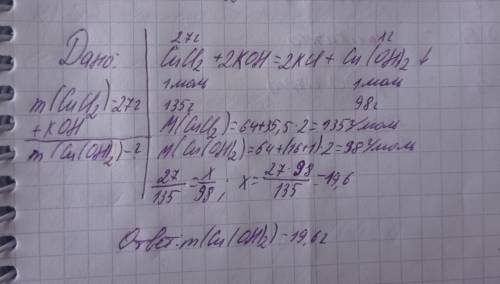 Дано:
m(CuCl2)=27г
+KOH
m(Cu(OH)2)-?
27г xг
CuCl2 + 2KOH = 2KCl + Cu(OH)2 ↓
1моль 1моль
135г 98г
M(CuCl2)=64+35,5·2=135г/моль
M(Cu(OH)2)=64+(16+1)·2=98г/моль
27/135=x/98; x=27·98/135=19,6
Ответ: m(Cu(OH)2)=19,6г